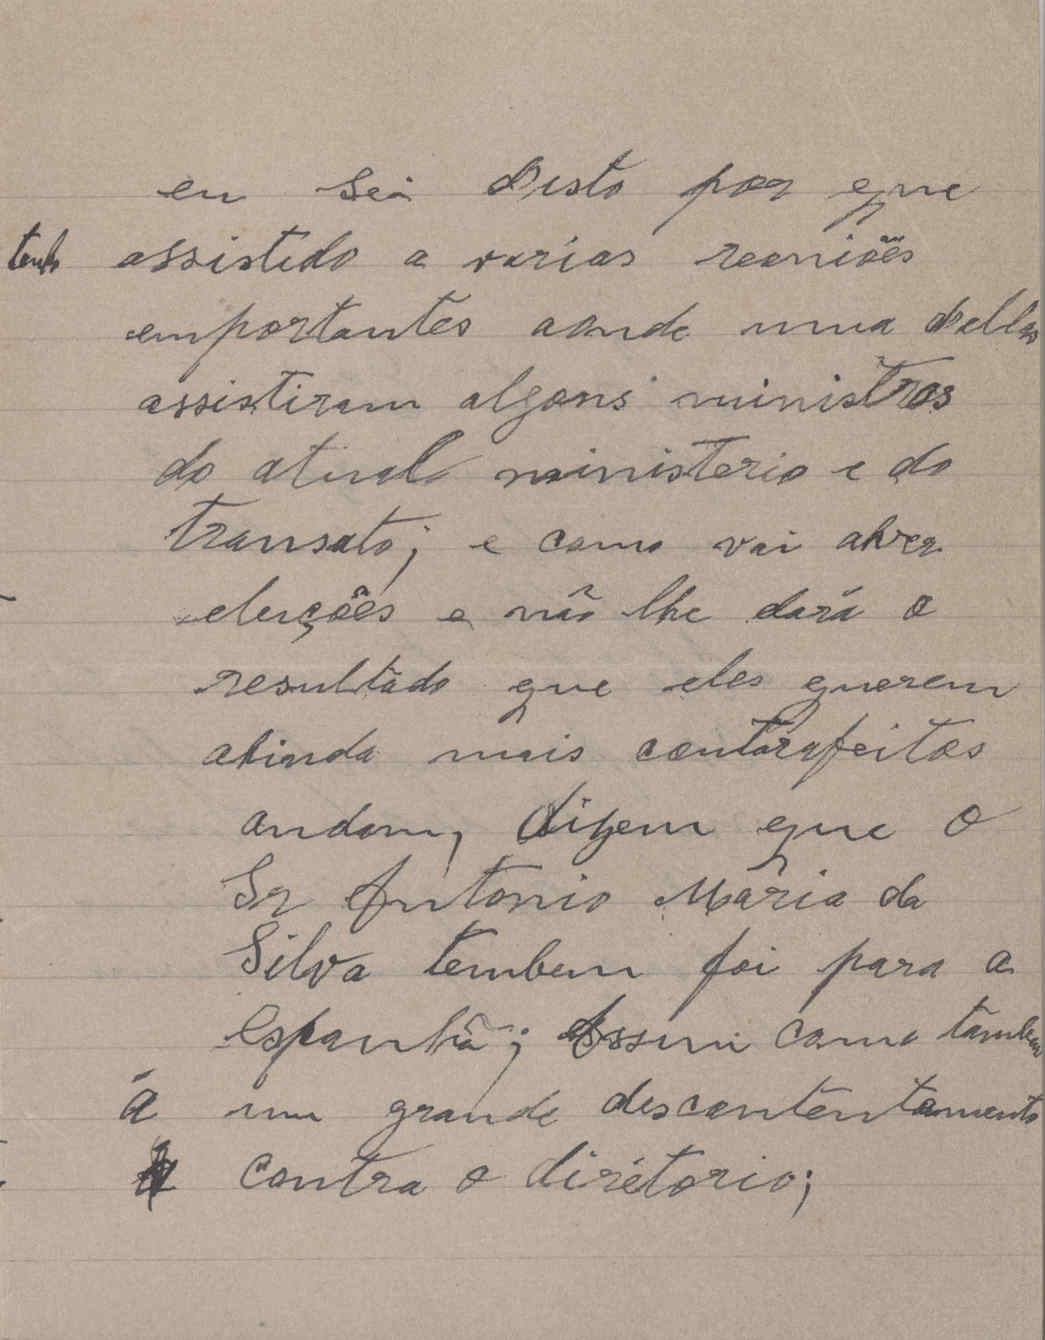 eu sei disto por que
tenho assistido a varias reoniões
emportantes aonde numa dellas
assistiram algons ministros
do atual ministerio e do
transato; e como vai aver
eleições e não lhe dará o
resultado que eles querem
ahinda mais contrafeitos
andam, dizem que o
Sr Antonio Mãria da
Silva tembem foi para a
espanhã; Assim como tãmbem
á um grande descontentamento
contra o dirétorio;